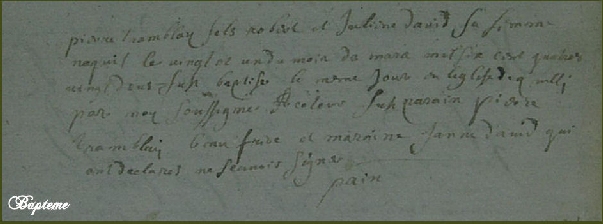 pierre tramblay fils robert et Juliene david sa femme
naquit le vingt et un du mois de mars mil six cent quatre
vingt deux fut baptise le meme Jour en leglise
par moy soussigne fut parain pierre
tramblay et maraine Janne david qui
ont declarez ne scavoir signe
pain
Bapteme